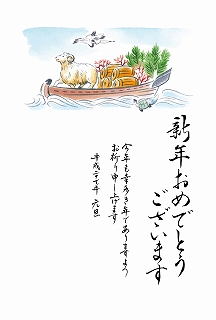 新年おめでとう
ございます
今年も幸多き年でありますよう
お祈り申し上げます
平成二十七年 元旦